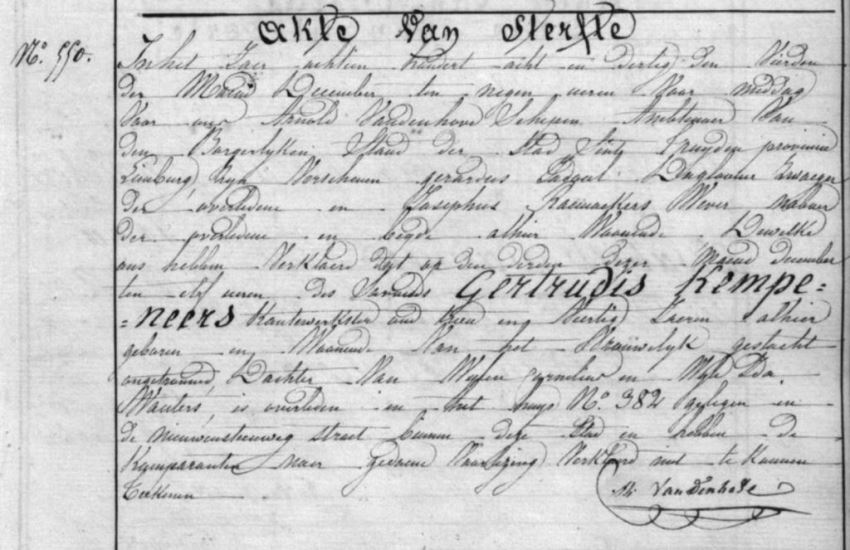 Akte Van Sterfte
No. 550.
In het Jaer achtien hondert acht en dertig den Vierden
der Maend December ten negen uren Voor middag
Voor ons Arnold Vandenhove Schepen Ambtenaer Van
den Borgerlyken Stand der Stad Sint Truyden provincie
Limburg, Zyn Verschenen gerardus Dagloonur Zwaeger
der overledene en Josephus Raemaekers Wever nabuer
der overledene en beyde alhier Woonende Dewelke
ons hebben Verklaerd dat op den derden dezer Maend december
ten elf uren des Savonds Gertrudis Kempe=
=neers Kantwerkster oud en Veertig Jaeren alhier
geboren en Woonende Van het Vrouwelyk geslacht
ongetrouwd, Dochter Van Wylen Cornelius en Wyle Ida
Wauters, is overleden in het huys No. 382 gelegen in
de nieuwensteenweg straet binnen deze Stad en hebben de
Komparanten naer gedaene Voorlezing Verklaerd niet te Konnen
Teekenen
Vandenhove